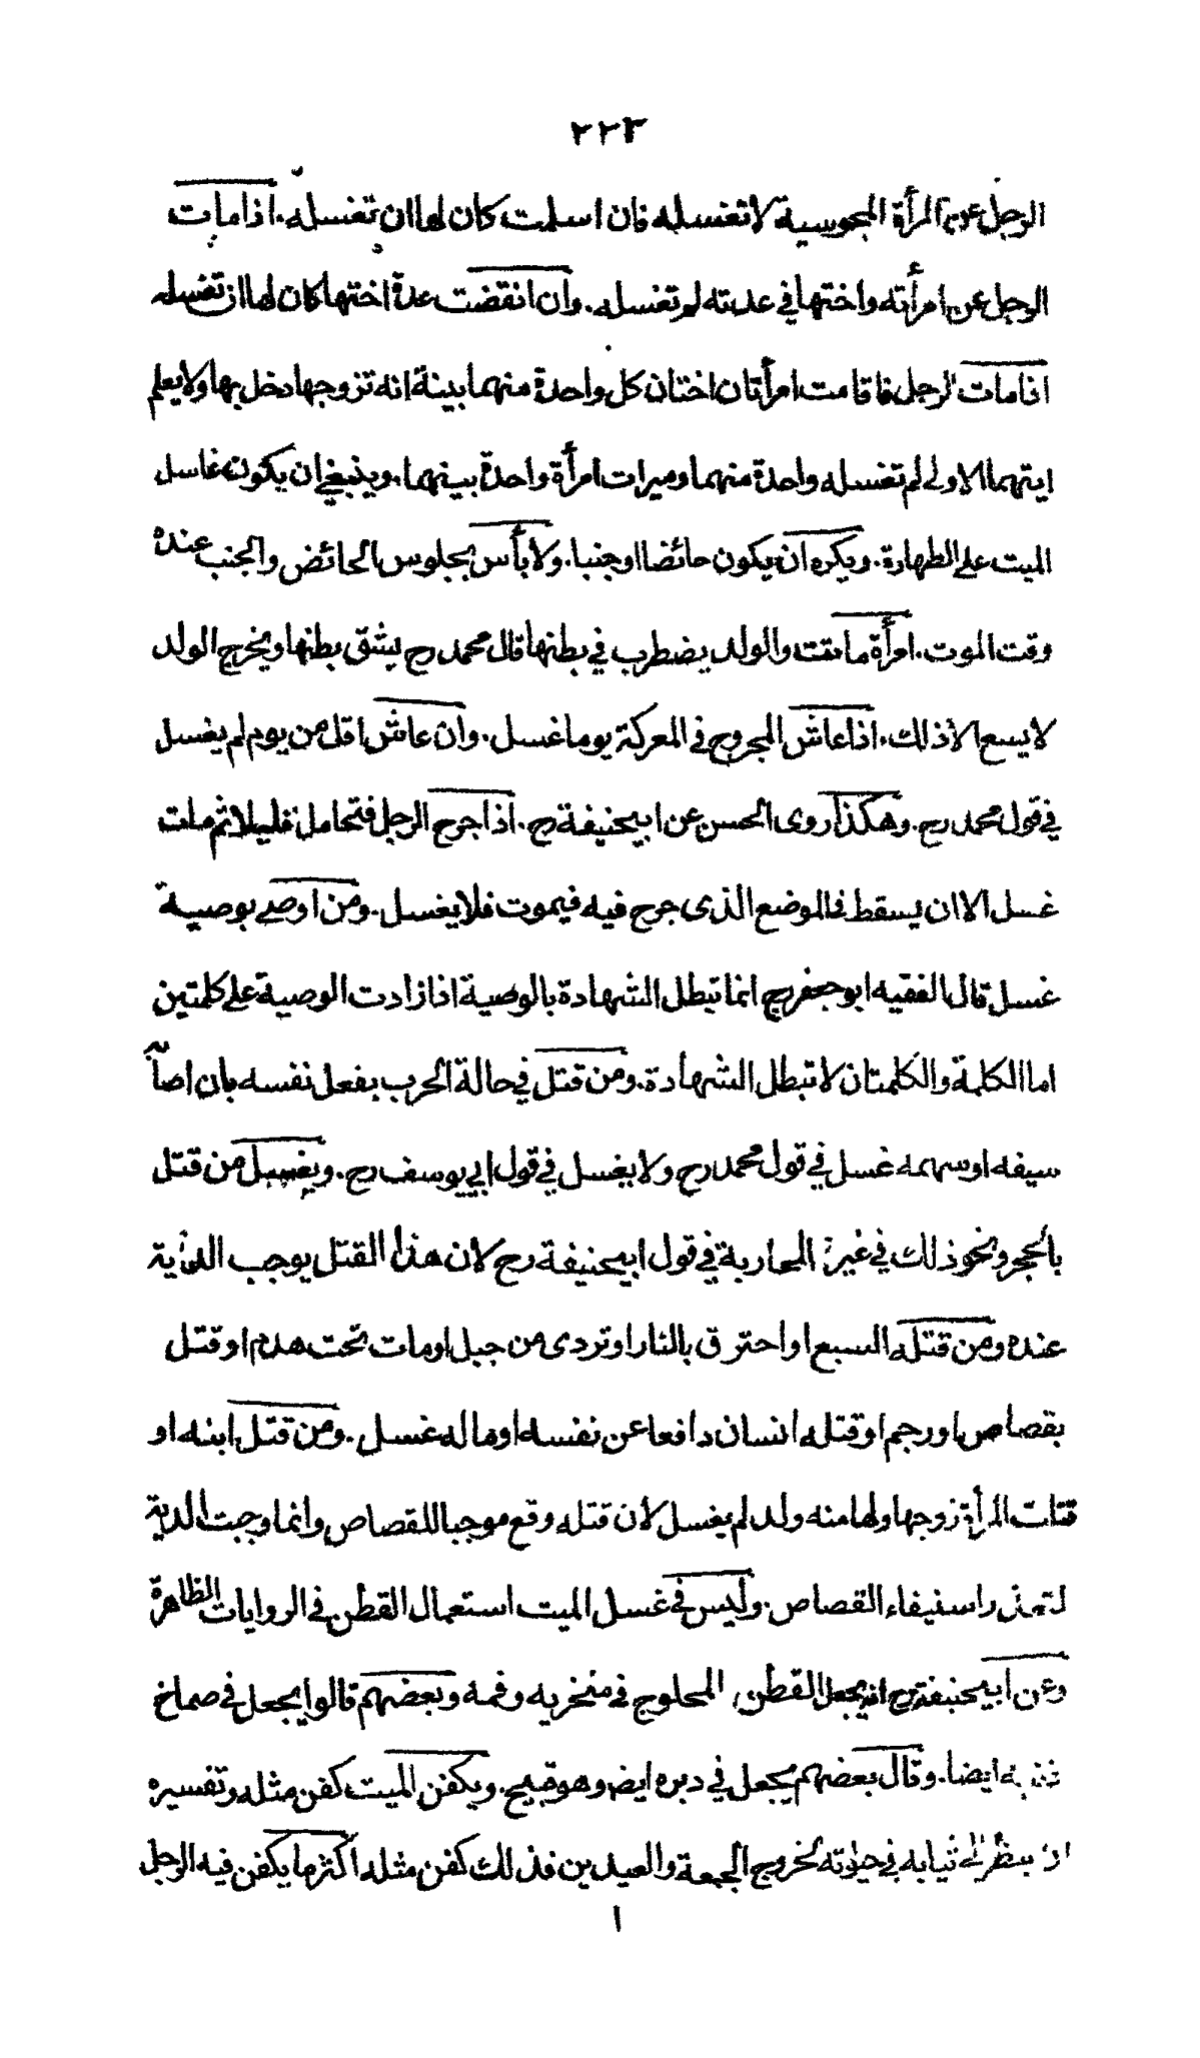 ٢٢٣
الرجل عن المرأة المجوسية لا تغسله فان اسلمت كان لها ان تغسله. اذا مات
الرجل عن امرأته واختها في عدته لم تغسله. وان انقضت عدة اختها كان لها ان تغسله
اذا مات الرجل فاقامت امرأتان اختان كل واحدة منهما بينة انه تزوجها دخل بها ولا يعلم
ايتهما الاولى لم تغسله واحدة منهما وميراث امرأة واحدة بينهما. وينبغي ان يكون غاسل
الميت على الطهارة. ويكره ان يكون حائضا او جنبا. ولا بأس بجلوس الحائض والجنب عنده
وقت الموت. امرأة ماتت والولد يضطرب في بطنها قال محمد رح يشق بطنها ويخرج الولد
لا يسع الا ذلك. اذا عاش المجروح في المعركة يوما غسل. وان عاش اقل من يوم لم يغسل
في قول محمد رح. وهكذا روى الحسن عن ابيحنيفة رح. اذا جرح الرجل فتحامل قليلا ثم مات
غسل الا ان يسقط في الموضع الذى جرح فيه فيموت فلا يغسل. ومن اوصى بوصية
غسل قال الفقيه ابو جعفر رح انما تبطل الشهادة بالوصية اذا زادت الوصية على كلمتين
اما الكلمة والكلمتان لا تبطل الشهادة. ومن قتل في حالة الحرب بفعل نفسه بان اصاب
سيفه او سهمه غسل في قول محمد رح ولا يغسل في قول ابي يوسف رح. ويغسل من قتل
بالحجر ونحو ذلك في غير المحاربة في قول ابيحنيفة رح لان هذا القتل يوجب الدية
عنده ومن قتله السبع او احترق بالنار او تردى من جبل او مات تحت هدم او قتل
بقصاص او رجم او قتله انسان دافعا عن نفسه او ماله غسل. ومن قتل ابنه او
قتلت المرأة زوجها ولها منه ولد لم يغسل لان قتله وقع موجبا للقصاص وانما وجبت الدية
لتعذر استيفاء القصاص. وليس في غسل الميت استعمال القطن في الروايات الظاهرة
وعن ابيحنيفة رح انه يجعل القطن المحلوج في منخريه وفمه وبعضهم قالوا يجعل في صماخ
اذنيه ايضا. وقال بعضهم يجعل في دبره ايضا وهو قبيح. ويكفن الميت كفن مثله وتفسيره
ان ينظر الى ثيابه في حياته لخروج الجمعة والعيدين فذلك كفن مثله اكثر ما يكفن فيه الرجل
ا